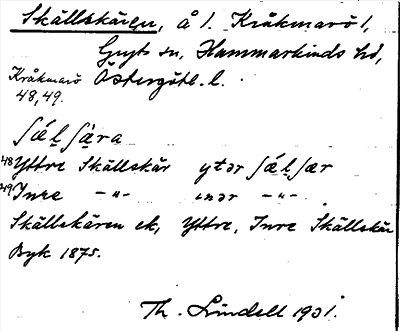 Skällskären, å 1. Kråkmarö 1,
Gryts sn, Hammarkinds hd,
Kråkmarö Östergötl. l.
48, 49.
ʃæ̀l̥ʃæ̀ra
48 Yttre Skällskär ytər ʃæ̀l̥ʃær
49 Inre –"– ɪnər –"–
Skällskären ek, Yttre, Inre Skällskär
Byk 1875.
Th. Lindell 1931.